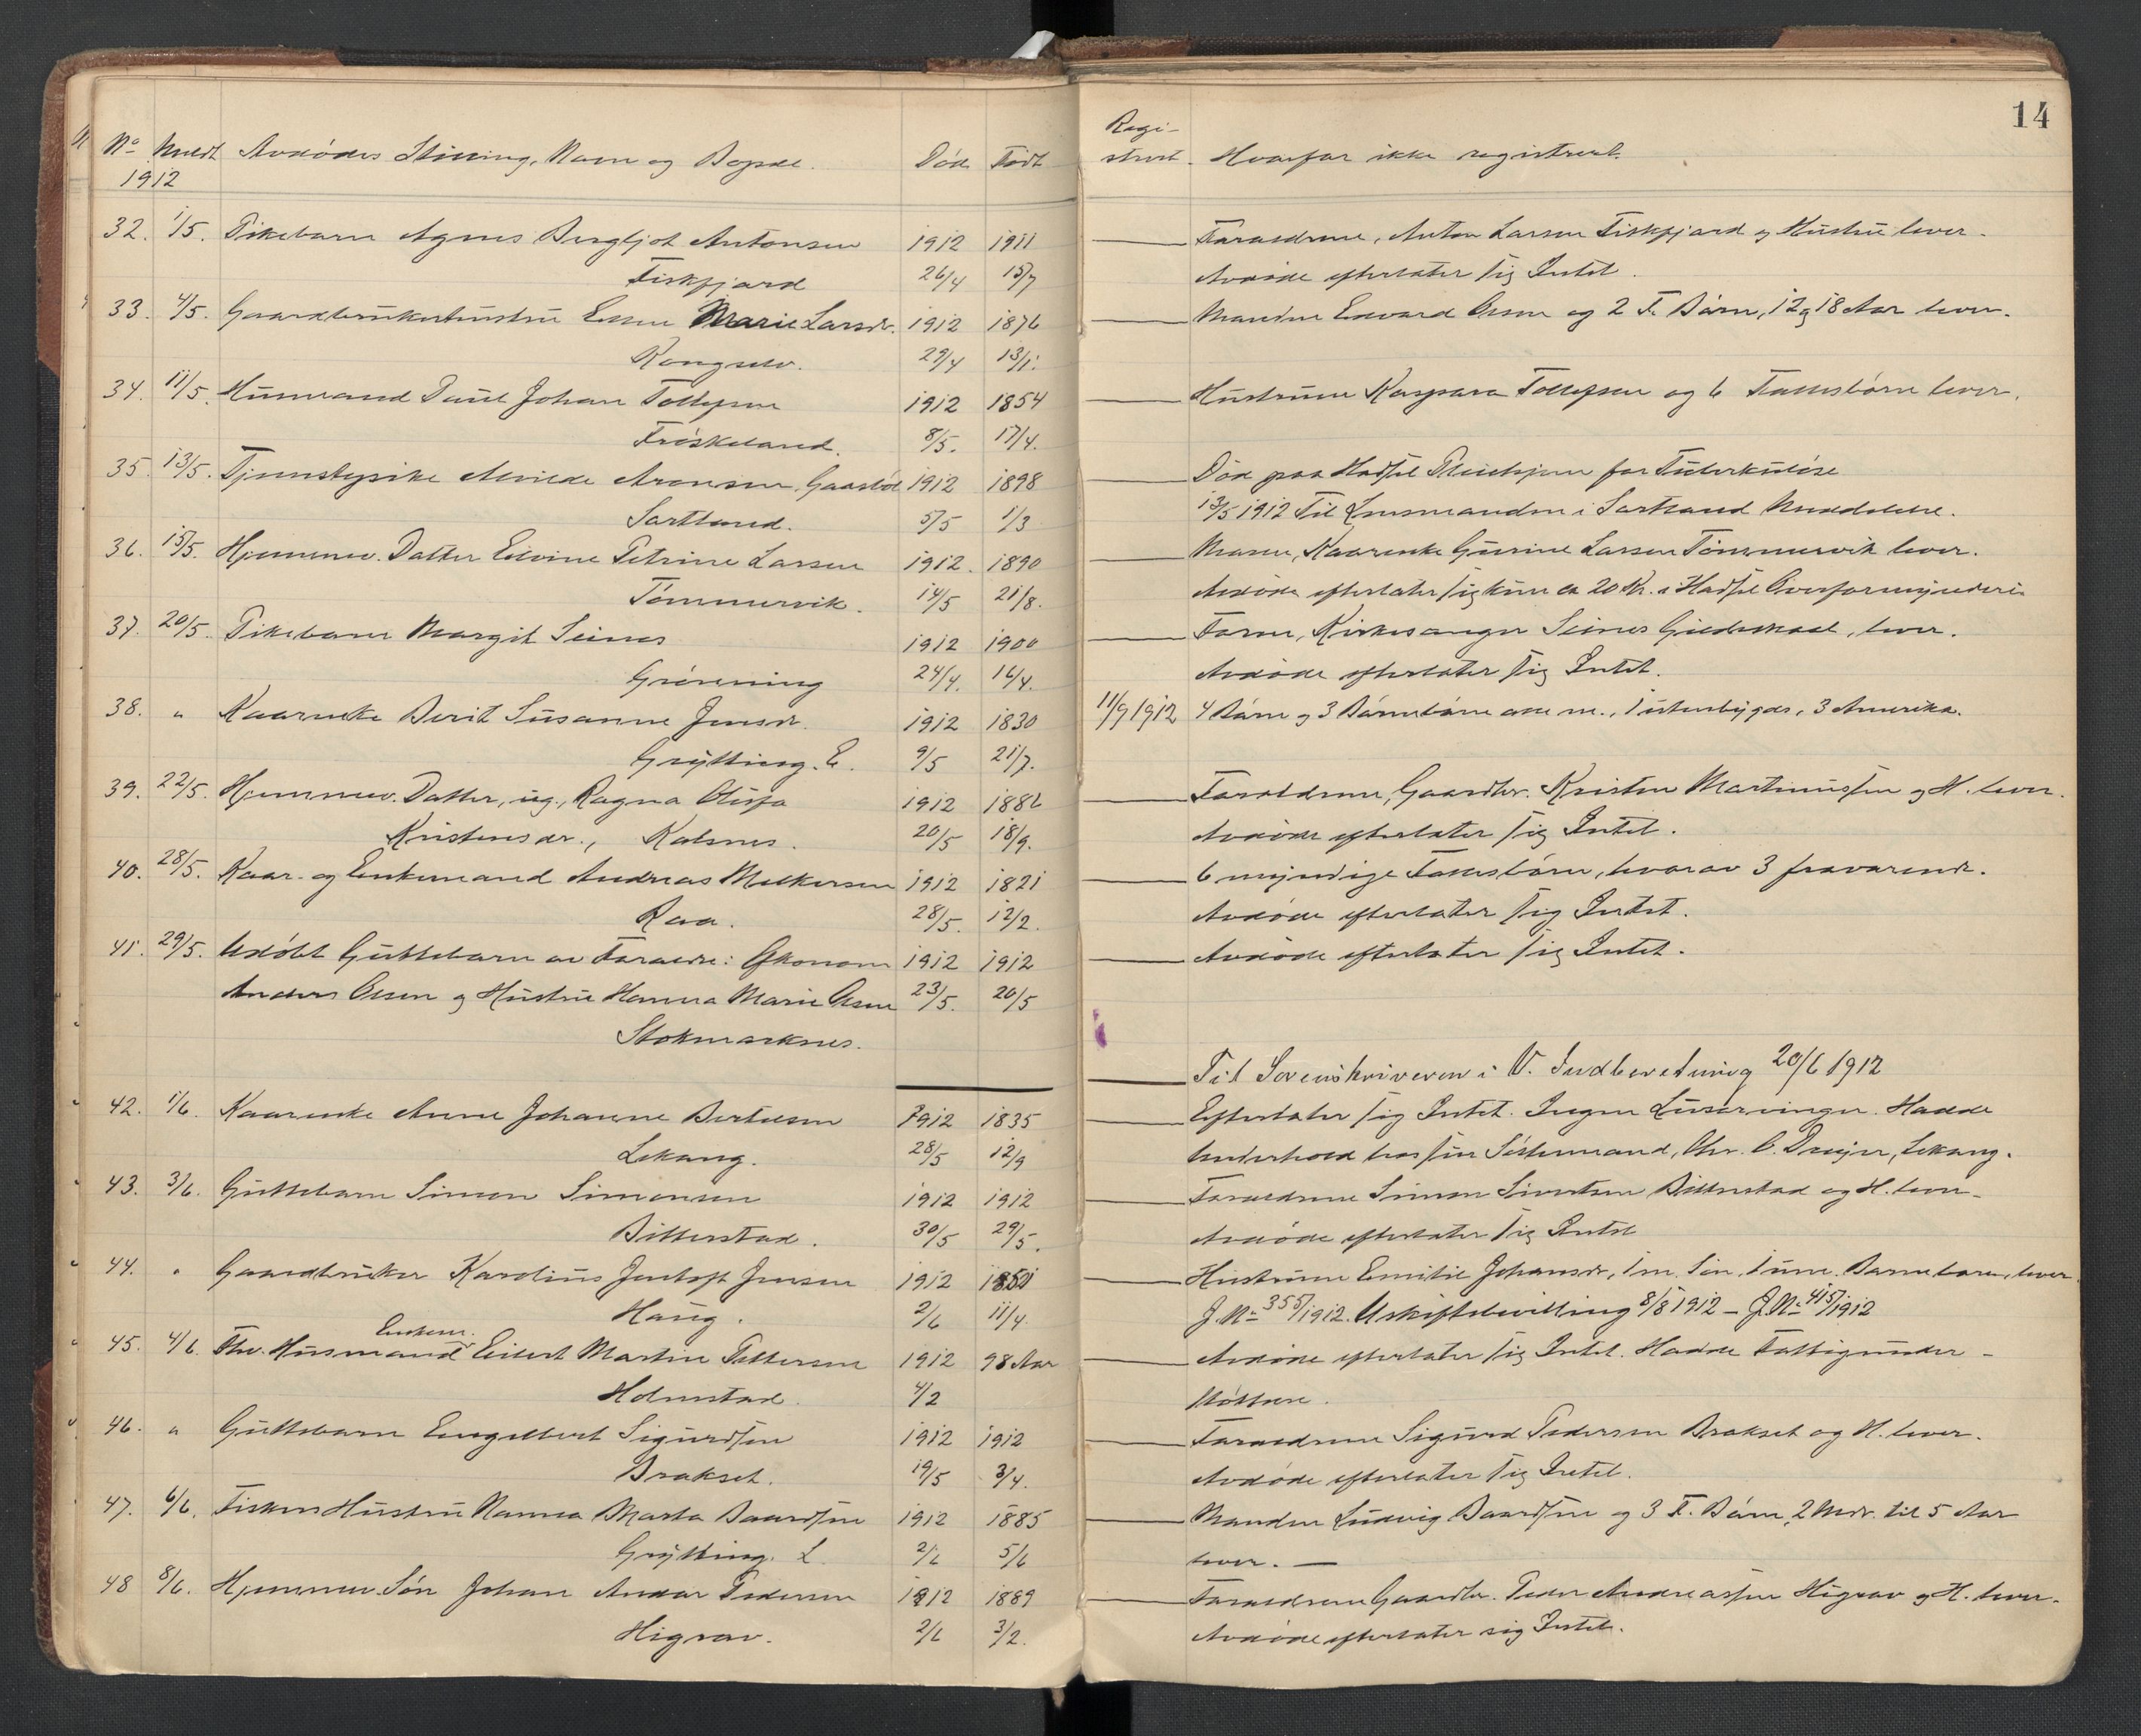 14
No Meldt Avdødes Stilling, Navn og Bopæl. Død Født
1912
Regi-
strert. Hvorfor ikke registrert.
32. 1/5. Pikebarn Agnes Bergljot Antonsen 1912 1911
Foraeldrene, Anton Larsen Fiskfjord og Hustru lever.
Fiskfjord 26/4 15/7
Avdøde efterlater sig Intet.
33. 4/5. Gaardbrukerhustru Marie Larsdr. 1912 1876
Manden Edvard Olsen og 2 F. Børn, 12 og 18 Aar lever.
Kongselv. 29/4 13/1.
34. 11/5. Husmand Paul Johan Tollefsen 1912 1854
Hustruen Kaspara Tollefsen og 6 Fællesbørn lever.
Frøskeland. 8/5. 17/4.
35. 13/5. Tjenestepike Alvilde Aronsen, 1912 1898
Død paa Hadsel Pleiehjem for Tuberkuløse
Sortland. 5/5 1/3
13/5 1912 Til Lensmanden i Sortland Meddelelse.
36. 15/5. Hjemmev. Datter Elvine Petrine Larsen 1912. 1890
Moren, Kaarenke Gurine Larsen Tømmervik lever.
Tømmervik. 14/5 21/8.
Avdøde efterlater sig kun ca 20 Kr. i Hadsel Overformynderi
37. 20/5. Pikebarn Margit Seines 1912 1900
Faren, Kirkesanger Seines Gildeskaal, lever.
Grønning 24/4. 16/4.
Avdøde efterlater sig Intet.
38. " Kaarenke Berit Susanne Jensdr. 1912 1830
11/9 1912 4 Børn og 3 Børnebørn alle m., 1 utenbygds, 3 Amerika.
Grytting. E. 9/5 21/7.
39. 22/5. Hjemmev. Datter, ug., Ragna Olufa 1912 1886
Foraeldrene, Gaardbr. Kristen Martinussen og H. lever.
Kristensdr., Kalsnes. 20/5 18/9.
Avdøde efterlater sig Intet.
40. 28/5. Kaar- og Enkemand Andreas Melkersen 1912 1821
6 myndige Fællesbørn, hvorav 3 fraværende.
Raa. 28/5. 12/2.
Avdøde efterlater sig Intet.
41. 29/5. Udøbt Guttebarn av Foraeldre: Økonom 1912 1912
Avdøde efterlater sig Intet.
Anders Olsen og Hustru Hanna Marie Olsen 23/5. 20/5
Stokmarknes.
Til Sorenskriveren i V. Indberetning 20/6 1912
42. 1/6. Kaarenke Anne Johanne Bertelsen 1912 1835
Efterlater sig Intet. Ingen Livsarvinger. Hadde
Lekang. 28/5 12/9
Underhold hos sin Søstermand, Chr. C. Dreyer, Lekang.
43. 3/6. Guttebarn Simon Simonsen 1912 1912
Foraeldrene Simon Sivertsen Bitterstad og H. lever.
Bitterstad. 30/5 29/5.
Avdøde efterlater sig Intet
44. " Gaardbruker Karolius Jentoft Jensen 1912 1851
Hustruen Emilie Johansdr., 1 m. Søn, 1 um. Barnebarn, lever.
Haug. 2/6 11/4
J. No 355/1912. Uskiftebevilling 8/8 1912 — J. No 415/1912
45. 4/6. Fhv. Husmand Enkem. Eilert Martin Pettersen 1912 98 Aar
Avdøde efterlater sig Intet. Hadde Fattigunder-
Holmstad. 4/2
støttelse.
46. " Guttebarn Engelbert Sigurdsen 1912 1912
Foraeldrene Sigurd Pedersen Brokset og H. lever.
Brokset. 19/5 3/4.
Avdøde efterlater sig Intet.
47. 6/6. Fiskers Hustru Hanna Marta Baardsen 1912 1885
Manden Ludvig Baardsen og 3 F. Børn, 2 Mdr. til 5 Aar
Grytting. L. 2/6 5/6
lever. —
48 8/6. Hjemmev. Søn Johan Andor Pedersen 1912 1889
Foraeldrene Gaardbr. Peder Andreassen Higrav og H. lever.
Higrav. 2/6 3/2.
Avdøde efterlater sig Intet.